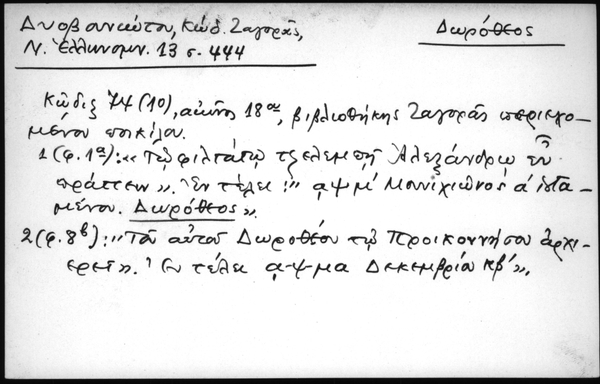 Δυοβουνιώτου, Κώδ. Ζαγορᾶς,
Δωρόθεος
Ν. Ἑλληνομν. 13 σ. 444
Κῶδιξ 74 (10), αἰῶνος 18ου, βιβλιοθήκης Ζαγορᾶς περιεχο-
μένου ποικίλου.
1 (φ. 1α): «Τῷ φιλτάτῳ τζελεμπῇ Ἀλεξάνδρῳ εὖ
πράττειν». Ἐν τέλει: "͵αψμ' Μουνιχιῶνος α' ἱστα-
μένου. Δωρόθεος».
2 (φ. 8β): "Τοῦ αὐτοῦ Δωροθέου τῷ Προικοννήσου ἀρχι-
ερεῖ». Ἐν τέλει ͵αψμα Δεκεμβρίου κβ'».